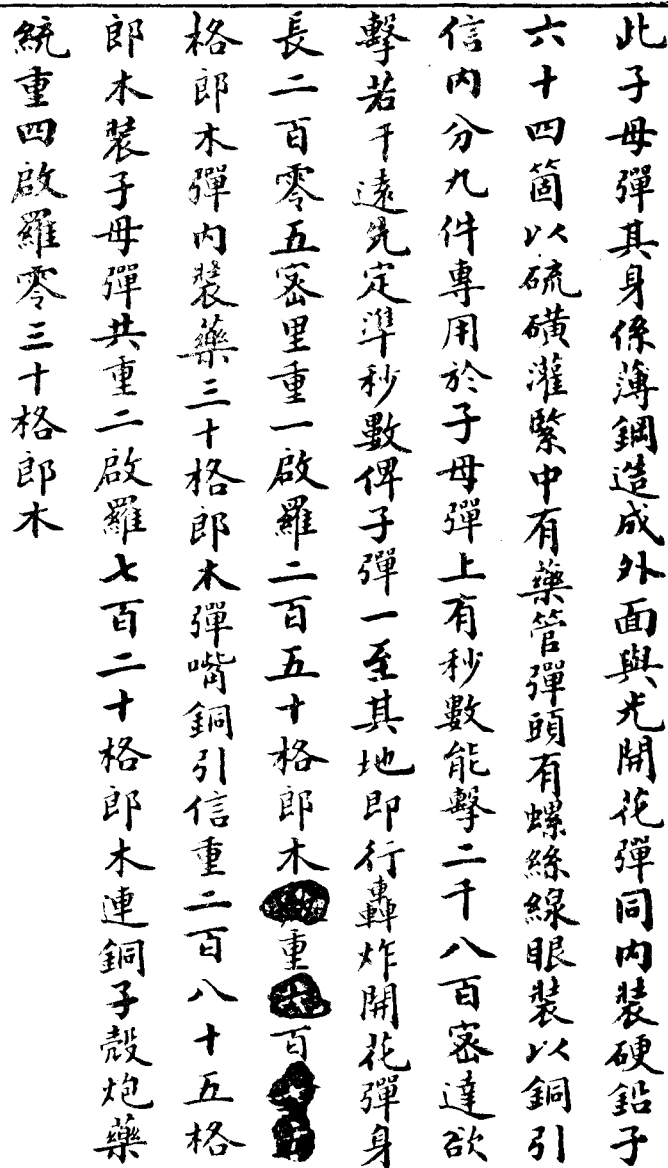 此子母彈其身係薄鋼造成外面與光開花彈同內裝硬鉛子
六十四箇以硫磺灌緊中有藥管彈頭有螺絲線眼裝以銅引
信內分九件專用於子母彈上有秒數能擊二千八百密達欲
擊若干遠先定準秒數俾子彈一至其地即行轟炸開花彈身
長二百零五密里重一啟羅二百五十格郎木重百
格郎木彈內裝藥三十格郎木彈嘴銅引信重二百八十五格
郎木裝子母彈共重二啟羅七百二十格郎木連銅子殼炮藥
統重四啟羅零三十格郎木